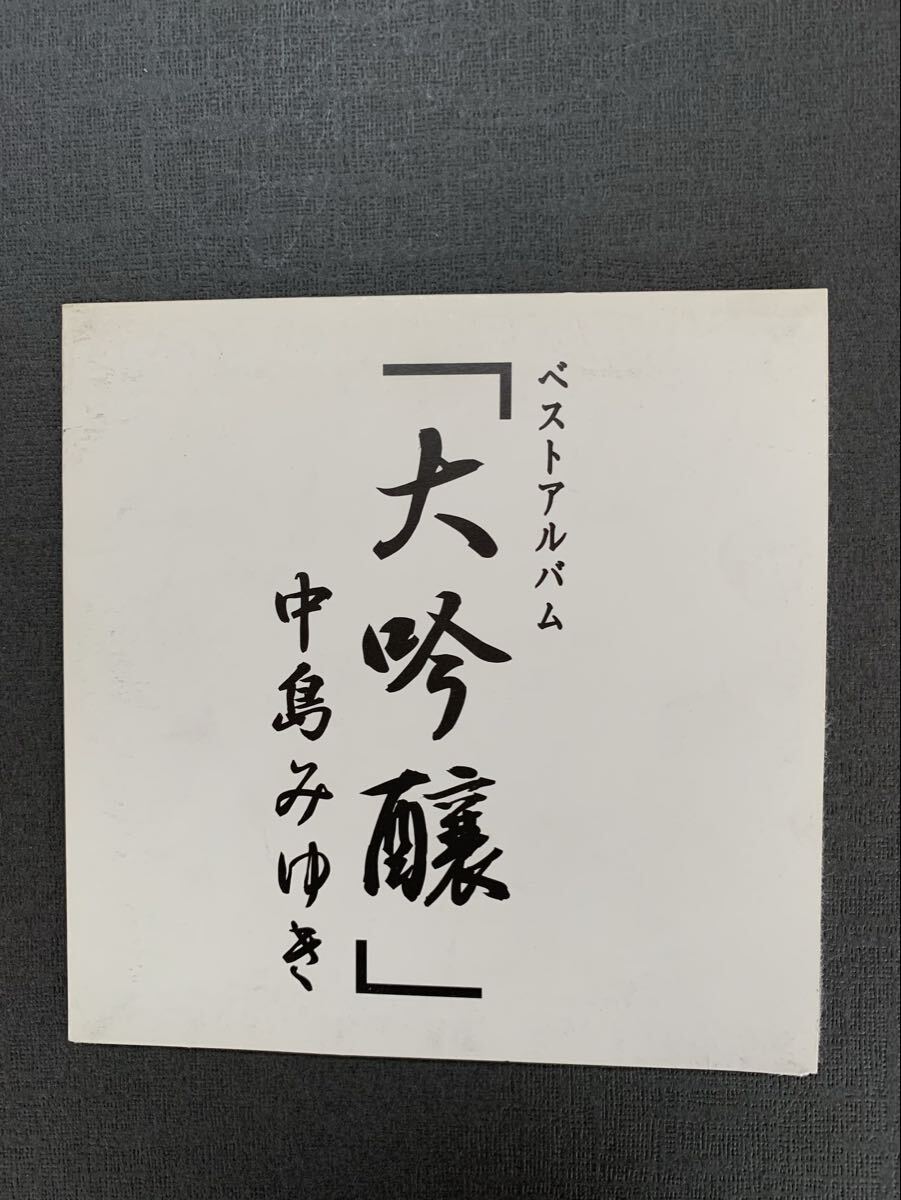 ベストアルバム
「大吟醸」
中島みゆき